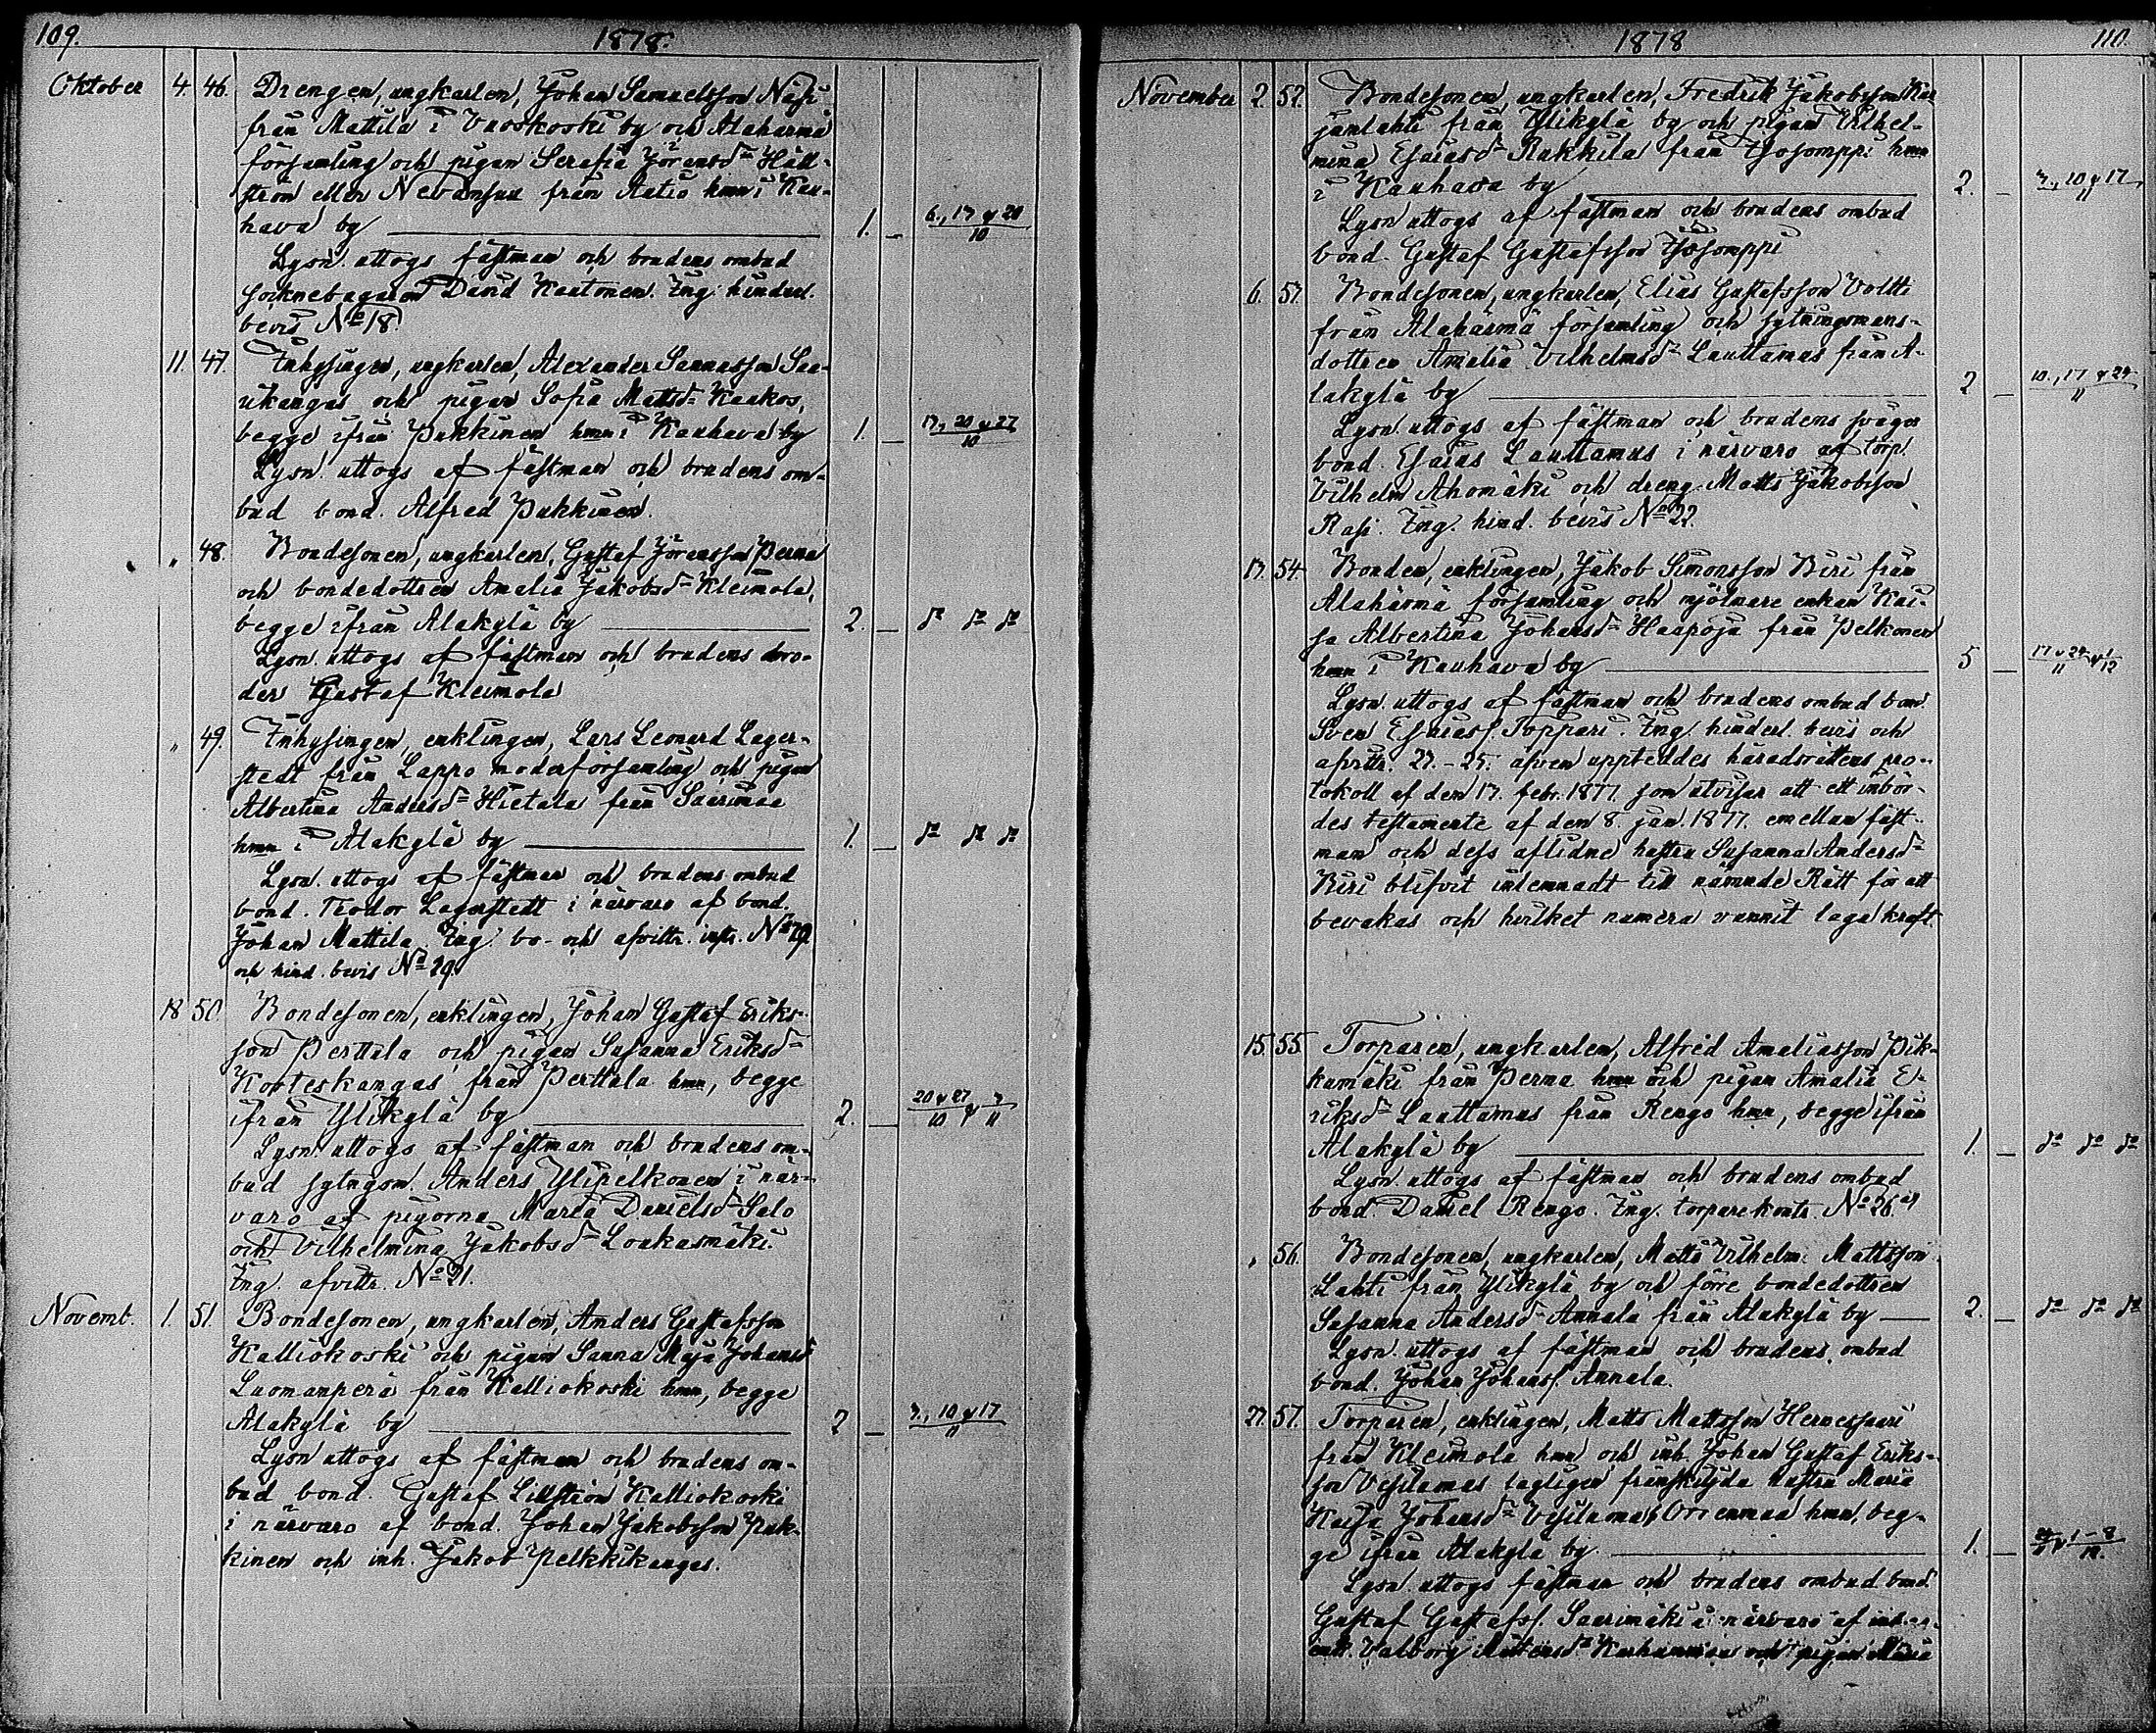 109. 1878.
Oktober 4. 46. Drengen, ungkarlen, Johan Samuelsson Näsi
från Mattila i Vuoskoski by och Alahärmä
församling och pigan Serafia Jöransdr Häll-
ström eller Nevansuu från Aatio hmn i Kau-
hava by 1. _ 6., 13 & 20/10
Lysn. uttogs fästman och brudens ombud
socknebagaren David Kautonen. Ing. hinderl.
bevis No 18.
11. 47. Inhysingen, ungkarlen, Alexander Sannasson Saa-
ukangas och pigan Sofia Mattsdr Kaakos,
begge ifrån Pukkinen hmn i Kauhava by 1. _ 13., 20 & 27/10
Lysn. uttogs af fästman och brudens om-
bud bond. Alfred Pukkinen.
" 48. Bondesonen, ungkarlen, Gustaf Jöransson Perna
och bondedottren Amalia Jakobsdr Kleimola,
begge ifrån Alakylä by 2. _ do do do
Lysn. uttogs af fästman och brudens bro-
der Gustaf Kleimola
" 49. Inhysingen, enklingen, Lars Leonard Lager-
stedt från Lappo moderförsamling och pigan
Albertina Andersdr Hietala från Saarimaa
hmn i Alakylä by 1. _ do do do
Lysn. uttogs af fästman och brudens ombud
bond. Teodor Lagerstedt i närvaro af bond.
Johan Mattila. Ing. bo- och afvittr. instr. No 19
och hind. bevis No 29.
18 50. Bondesonen, enklingen, Johan Gustaf Eriks-
son Perttula och pigan Susanna Eriksdr
Korteskangas från Perttula hmn, begge
ifrån Ylikylä by 2. _ 20 & 27/10 & 3/11
Lysn. uttogs af fästman och brudens om-
bud sytngsm. Anders Ylipelkonen i när-
varo af pigorna Maria Danielsdr Salo
och Vilhelmina Jakobsdr Loukasmäki.
Ing. afvittr. No 21.
Novemb. 1. 51. Bondesonen, ungkarlen, Anders Gustafsson
Kalliokoski och pigan Sanna Maja Johansdr
Luomanperä från Kalliokoski hmn, begge
Alakylä by 2 _ 3., 10 & 17/11
Lysn uttogs af fästman och brudens om-
bud bond. Gustaf Lillström Kalliokoski
i närvaro af bond. Johan Jakobsson Puk-
kinen och inh. Jakob Pelkkikangas.
1878 110.
November 2. 52. Bondesonen, ungkarlen, Fredrik Jakobsson Kar
janlahti från Ylikylä by och pigan Vilhel-
mina Esaiasdr Rakkila från Isosomppi hmn
i Kauhava by 2. _ 3., 10 & 17/11
Lysn uttogs af fästman och brudens ombud
bond. Gustaf Gustafsson Isosomppi
6. 53. Bondesonen, ungkarlen, Elias Gustafsson Voltti
från Alahärmä församling och sytningsmans-
dottren Amalia Vilhelmsdr Lauttamus från A-
lakylä by 2 _ 10., 17 & 24/11
Lysn. uttogs af fästman och brudens svåger
bond. Esaias Lauttamus i närvaro af torp.
Vilhelm Ahomäki och dreng. Matts Jakobsson
Rasi. Ing. hind. bevis No 22.
13. 54. Bonden, enklingen, Jakob Simonsson Biri från
Alahärmä församling och mjölnare enkan Kai-
sa Albertina Johansdr Haapoja från Pelkonen
hmn i Kauhava by 5 _ 17 & 24/11 & 1/12
Lysn. uttogs af fästman och brudens ombud bond.
Sven Esaiass. Toppari. Ing. hinderl. bevis och
afvittr. 23.-25. äfven uppteddes häradsrättens pro-
tokoll af den 17. febr. 1877. som utvisar att ett inbör-
des testamente af den 8. jan. 1877. emellan fäst-
man och dess aflidne hustru Susanna Andersdr
Biri blifvit inlemnadt till nämnde Rätt för att
bevakas och hvilket numera vunnit laga kraft.
15. 55. Torparen, ungkarlen, Alfred Amaliasson Pik-
kamäki från Perna hmn och pigan Amalia E-
riksdr Lauttamus från Rengo hmn, begge ifrån
Alakylä by 1. _ do do do
Lysn. uttogs af fästman och brudens ombud
bond. Daniel Rengo. Ing. torparekontr. No 26.
" 56. Bondesonen, ungkarlen, Matts Vilhelm Mattsson
Lahti från Ylikylä by och förre bondedottren
Susanna Andersdr Annala från Alakylä by 2. _ do do do
Lysn. uttogs af fästman och brudens ombud
bond. Johan Johanss. Annala.
23. 57. Torparen, enklingen, Matts Mattsson Hernessaari
från Kleimola hmn och inh. Johan Gustaf Eriks-
son Vesitamas lagligen frånskiljda hustru Maria
Kaisa Johansdr Vesitamas Orrenmaa hmn, beg-
ge ifrån Alakylä by 1. _ 24/11 & 1-8/12.
Lysn uttogs fästman och brudens ombud bond.
Gustaf Gustafss. Saarimäki i närvaro af
enk. Valborg Karhunmaa och pigan Maria